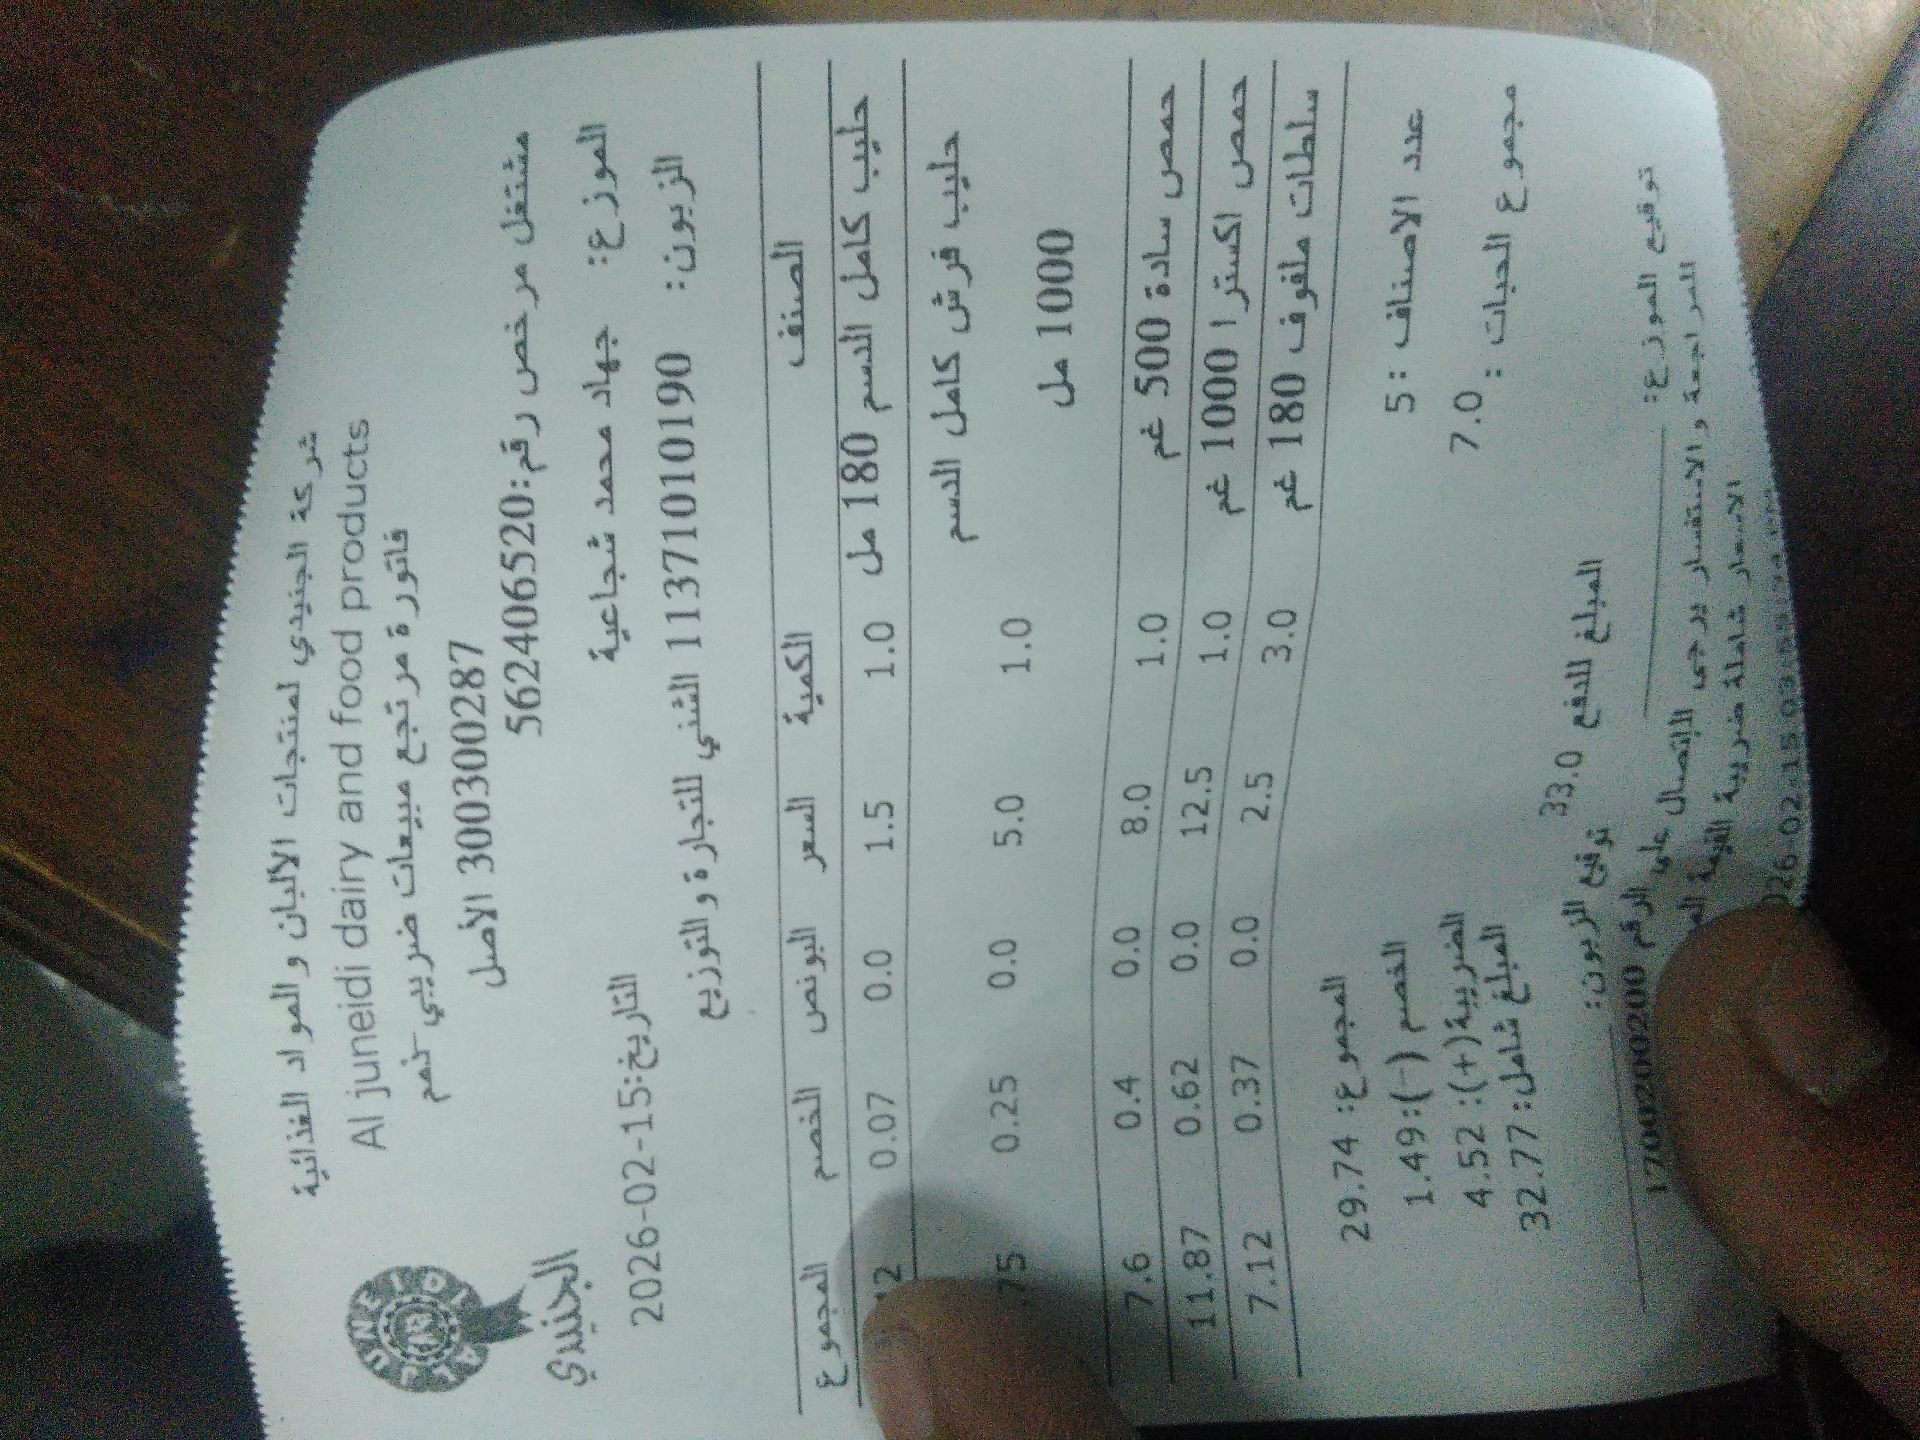 شركة الجنيدي لمنتجات الألبان والمواد الغذائية
Al juneidi dairy and food products
فاتورة مرتجع مبيعات ضريبي
300300287 الأصل
مشتغل مرخص رقم:562406520
AL JUNEIDI
الجنيدي
الموزع: جهاد محمد شجاعية
التاريخ:2026-02-15
الزبون: 11371010190 الشني للتجارة والتوزيع
الصنف الكمية السعر البونص الخصم المجموع
حليب كامل الدسم 180 مل 1.0 1.5 0.0 0.07
حليب فرش كامل الدسم 1000 مل 1.0 5.0 0.0 0.25
حمص سادة 500 غم 1.0 8.0 0.0 0.4 7.6
حمص اكسترا 1000 غم 1.0 12.5 0.0 0.62 11.87
سلطات ملفوف 180 غم 3.0 2.5 0.0 0.37 7.12
عدد الاصناف :5 المجموع: 29.74
مجموع الحبات : 7.0 الخصم (-):1.49
الضريبة(+): 4.52
المبلغ شامل: 32.77
المبلغ للدفع 33.0
توقيع الموزع: توقيع الزبون:
للمراجعة والاستفسار يرجى الإتصال على الرقم 1700200200
الاسعار شاملة ضريبة القيمة